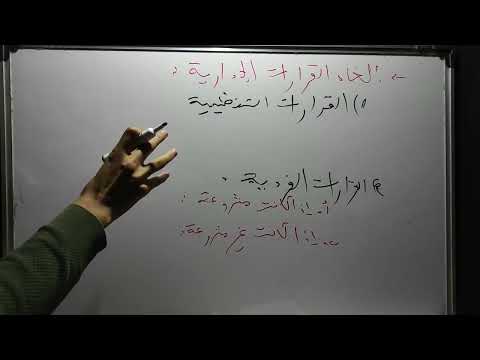 ← إلغاء القرارات الإدارية :
١) القرارات التنظيمية
٢) القرارات الفردية :
أ. إذا كانت مشروعة :
ب. إذا كانت غير مشروعة :